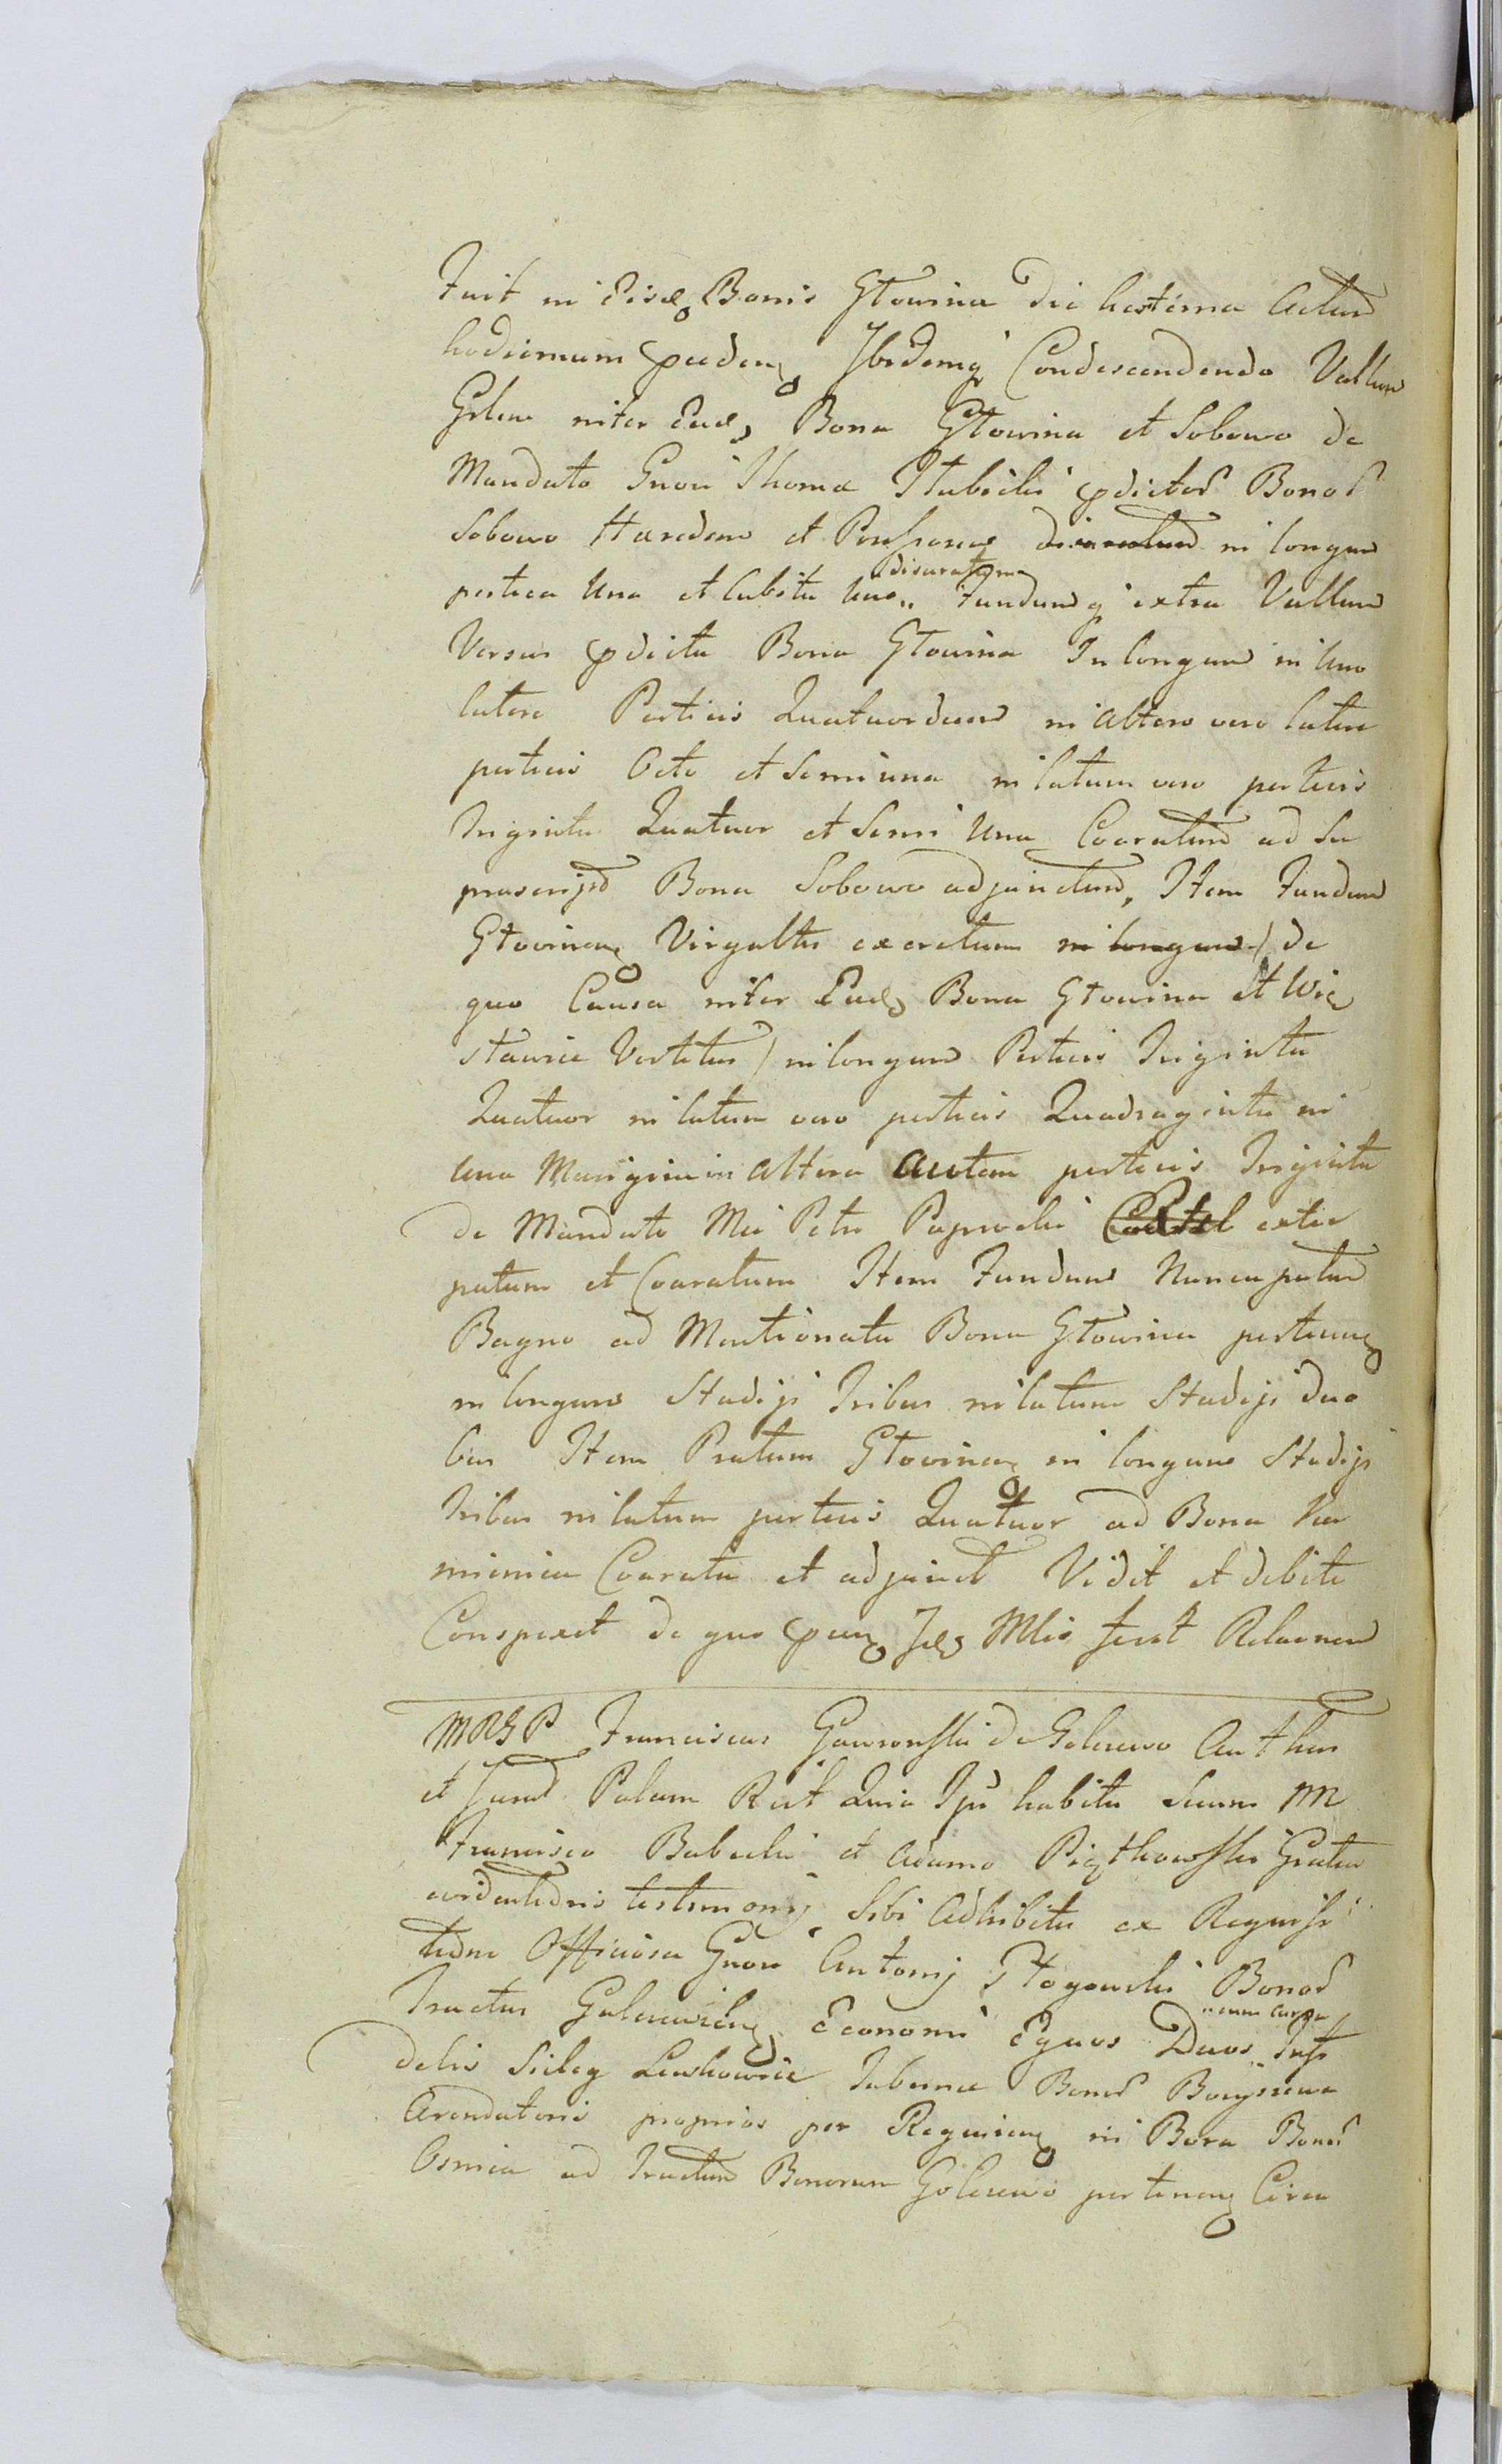 Fuit in Eisd Bonis Głowina die hesterna Actum
hodiernum pceden Ibidemq Condescendendo Vallum
Grlem inter Ead Bona Głowina et Sobowo de
Mandato Gnosi Thomæ pdictor Bonor
Sobowo Hæredem et Possessorem in longum
disaratum
pertica Una et Cubitu Uno Fundumq extra Vallum
Versus pdicta Bona Głowina In longum in Uno
latere Perticis Quatuordecem in Altero vero latere
perticis Octo et Semi una in latum vero perticis
Triginta Quatuor et Semi Una Coaratum ad Su
prascript Bona Sobowo adjunctum, Item Fundum
Głowinen Virgultis excretum in longum / de
quo Causa inter Ead Bona Głowina et Wię
sławice Vertitur / in longum Perticis Triginta
Quatuor in latum vero perticis Quadraginta in
Una Margine in Altera Autem perticis Triginta
de Mandato Mci Petri Paprocki extir
patum et Coaratum Item Fundum Nuncupatum
Bagno ad Mentionata Bona Głowina pertinen
in longum Stadijs Tribus in latum Stadijs duo
bus Item Pratum Głowinen in longum Stadijs
Tribus in latum perticis Quatuor ad Bona Ka
mienica Coarata et adjunct Vidit et debite
Conspexit de quo pun Id Mlis fecit Relaonem
MRGP Franciscus Gawroński de Golesewo Authen
et Jurat Palam Recit Quia Ips habitis Secum M
Francisco Babecki et Adamo Piątkowski Gratia
evidentioris testimonij Sibi Adhibitis ex Requisi
tione Officiosa Gnosi Antonij Bonor
Tractus Economi Equos Duos
cum curru
Tabernæ Bonor
Arendatoris proprios per in Bora Bonor
Osnica ad Tractum Bonorum Golesewo pertinen Circa